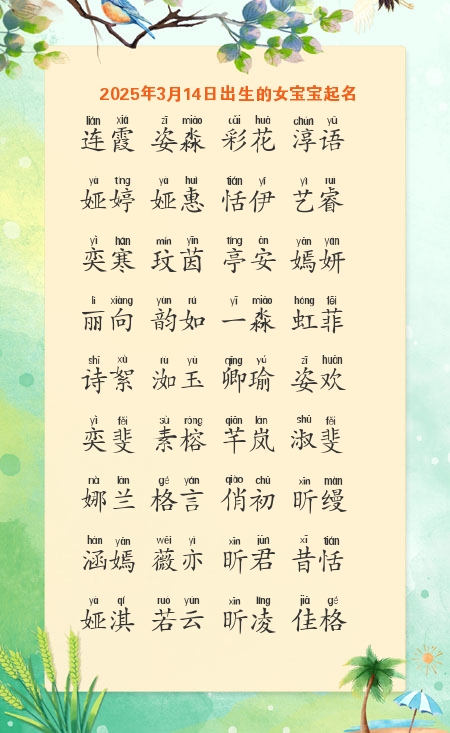 2025年3月14日出生的女宝宝起名
lián xiá zī miǎo cǎi huā chún yǔ
连霞 姿淼 彩花 淳语
yà tíng yà huì tián yī yì ruì
娅婷 娅惠 恬伊 艺睿
yì hán mín yīn tíng ān yān yán
奕寒 玟茵 亭安 嫣妍
lì xiàng yùn rú yī miǎo hóng fēi
丽向 韵如 一淼 虹菲
shī xù rù yù qīng yú zī huān
诗絮 洳玉 卿瑜 姿欢
yì fěi sù róng qiān lán shū fěi
奕斐 素榕 芊岚 淑斐
nà lán gé yán qiào chū xīn màn
娜兰 格言 俏初 昕缦
hán yān wēi yì xīn jūn xī tián
涵嫣 薇亦 昕君 昔恬
yà qí ruò yún xīn líng jiā gé
娅淇 若云 昕凌 佳格